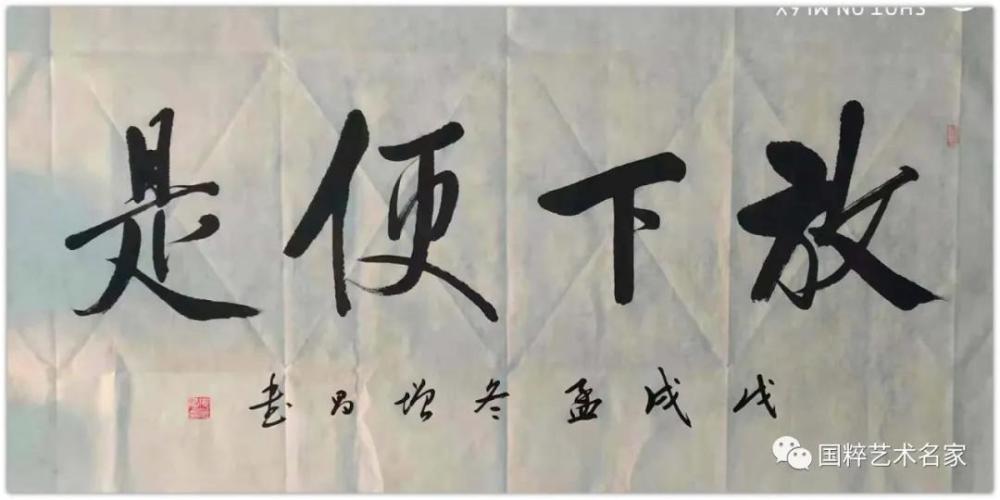 放下便是
戊戌孟冬增昌书
国粹艺术名家